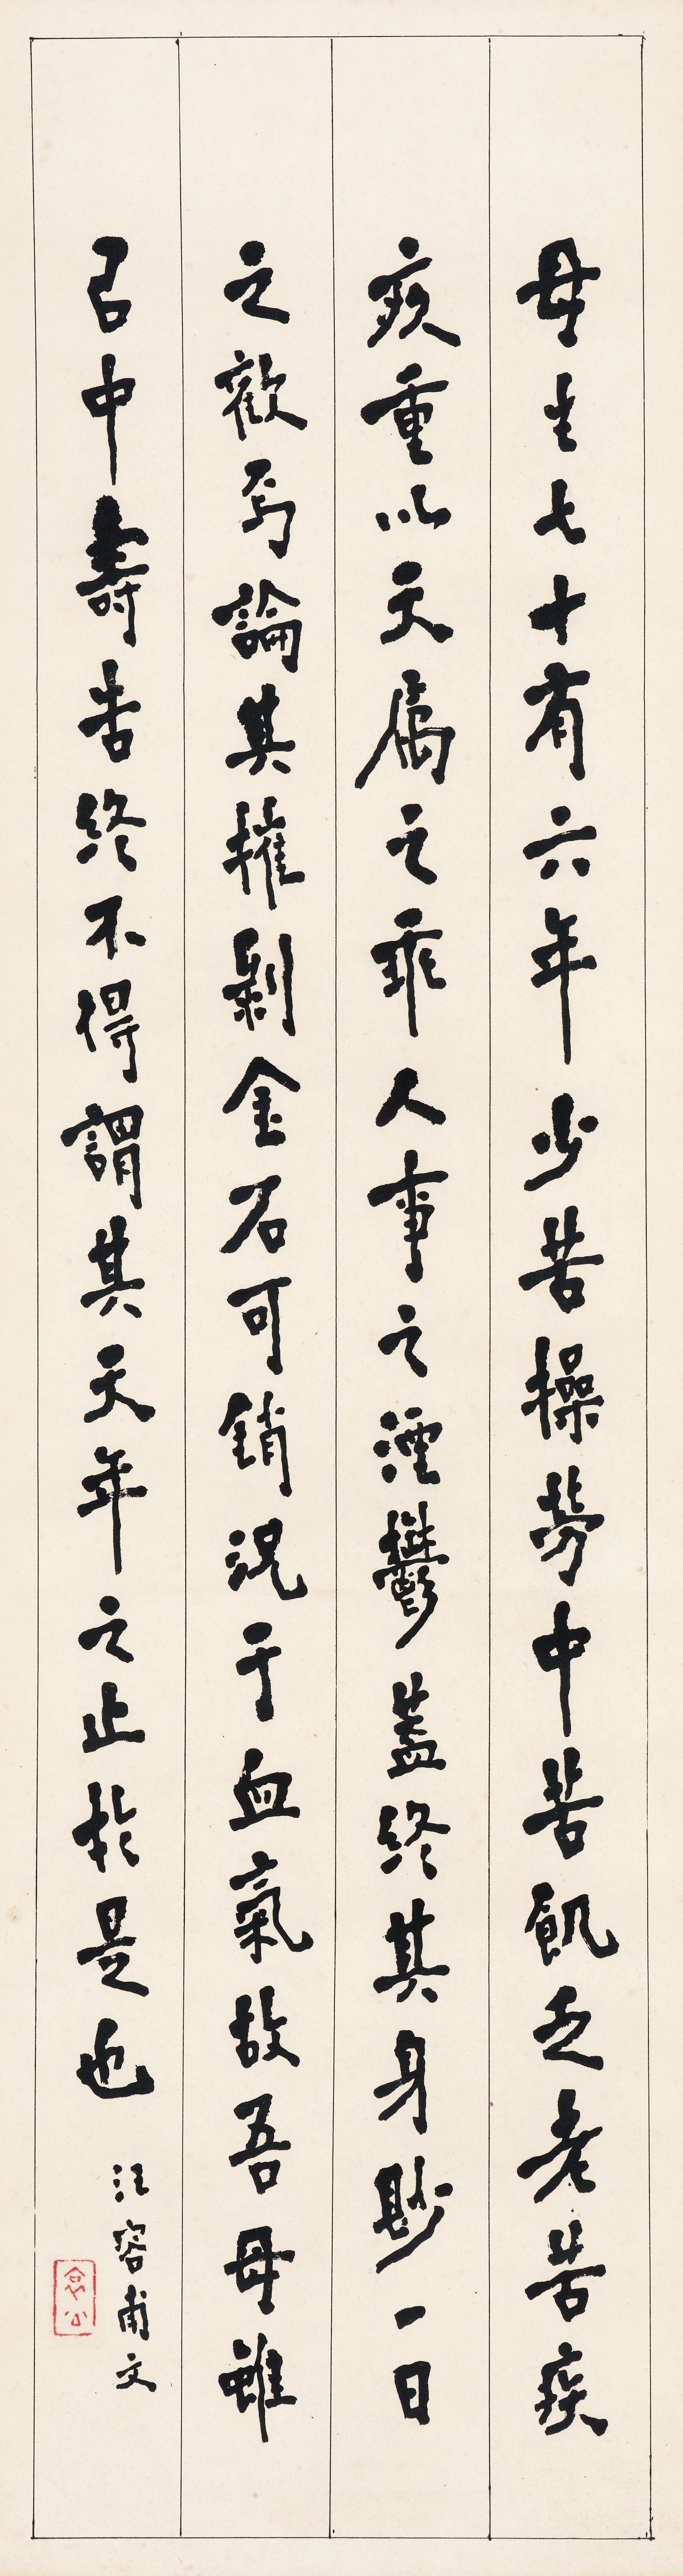 母生七十有六年少苦操勞中苦飢乏老苦疾
疢重以天属之乖人事之湮鬱蓋終其身尟一日
之歡焉論其摧剝金石可銷況于血氣故吾母雖
㠯中壽告終不得謂其天年之止於是也
汪容甫文